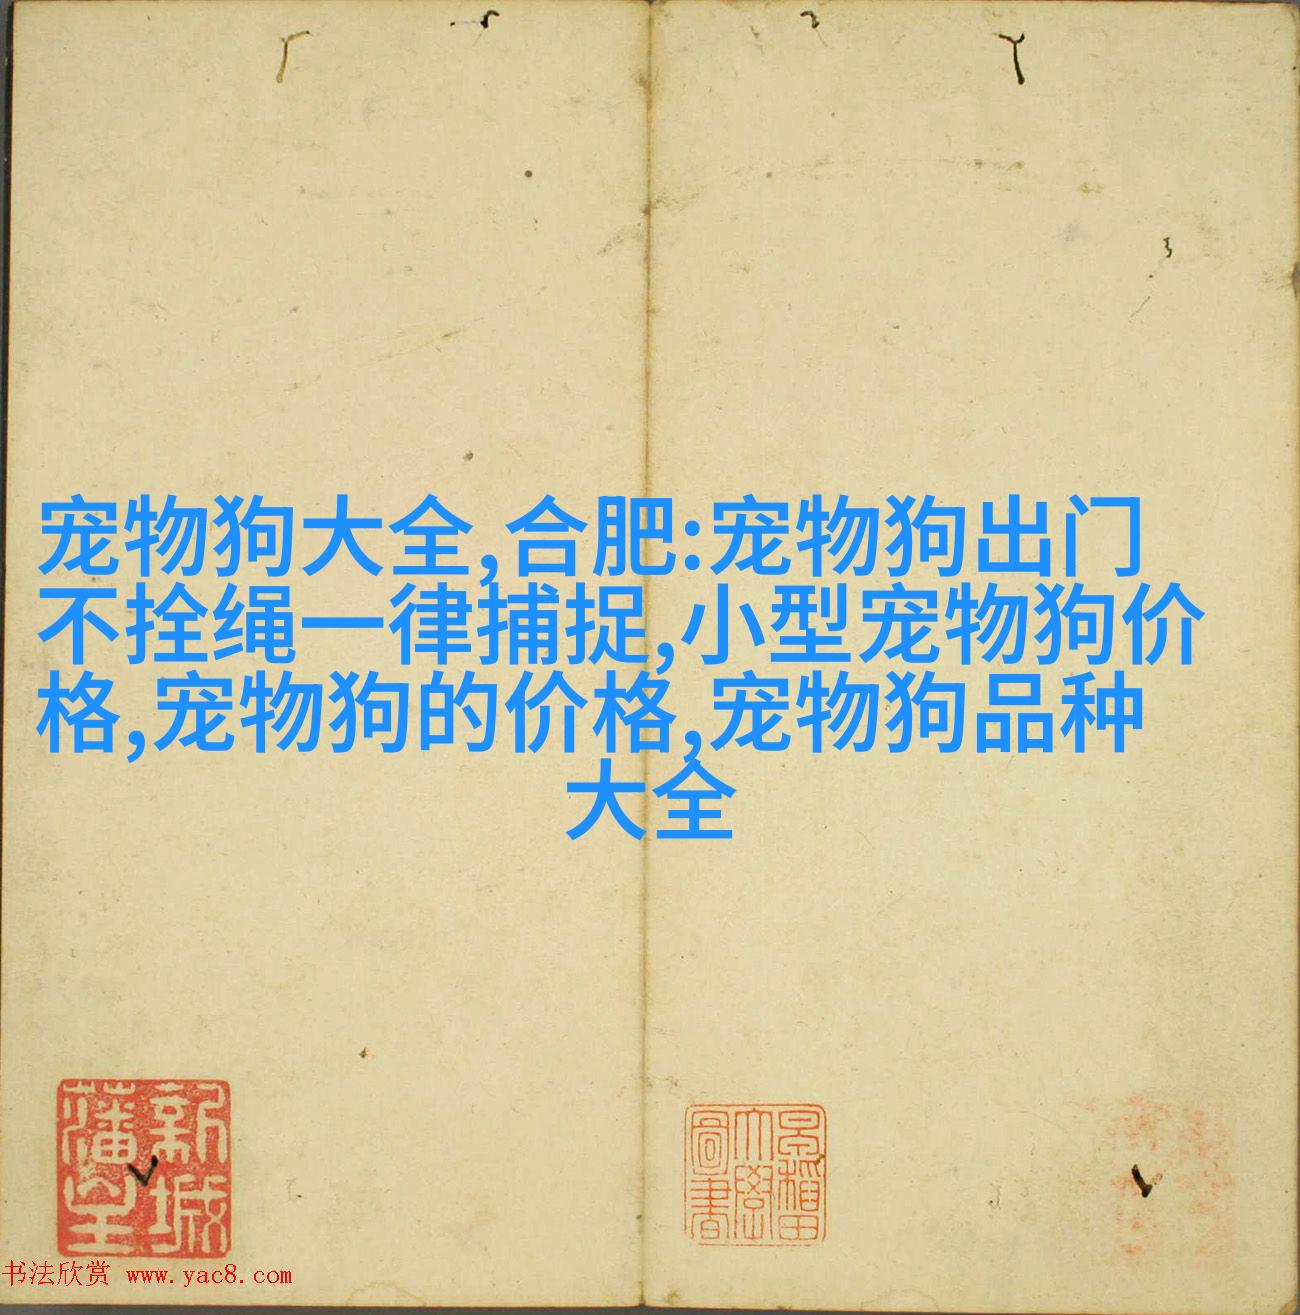 宠物狗大全,合肥:宠物狗出门
不拴绳一律捕捉,小型宠物狗价
格,宠物狗的价格,宠物狗品种
大全
新城
藩室
早稻田
大學
圖書
书法欣赏 www.yac8.com